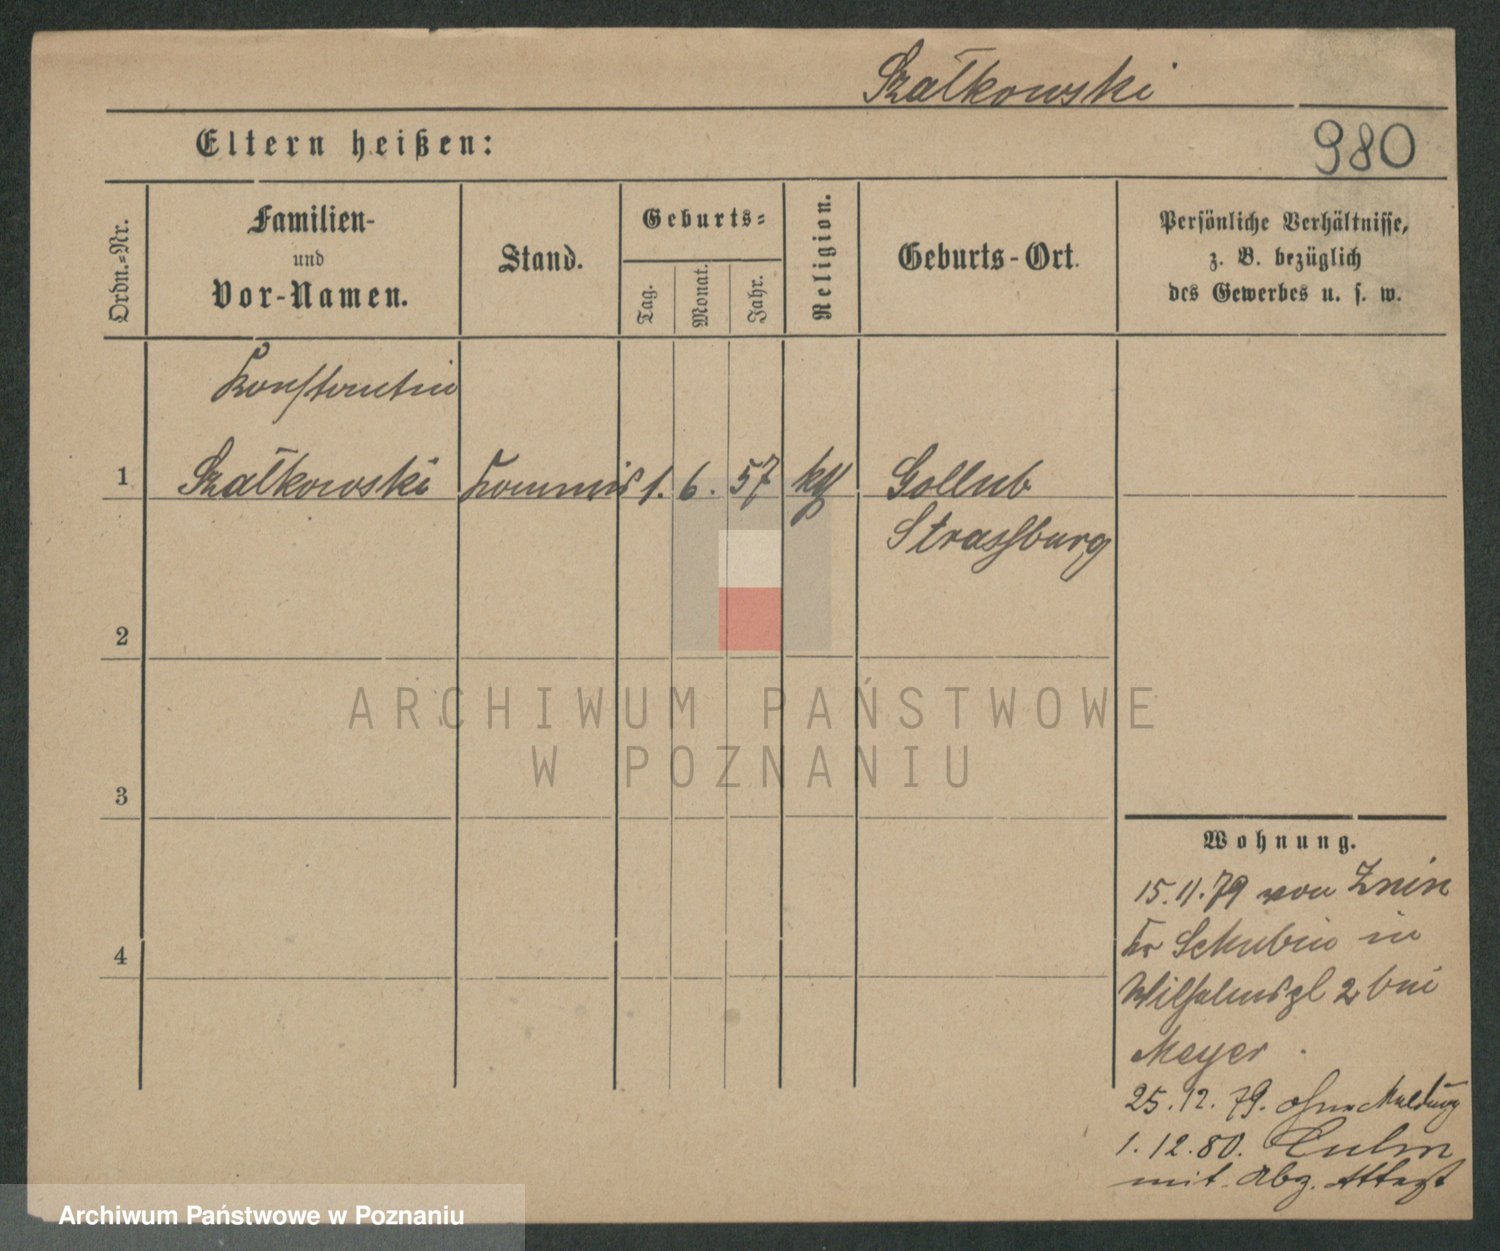 Szałkowski
Eltern heißen:
980
Ordn.=Nr.
Familien-
und
Vor-Namen.
Stand.
Geburts=
Tag.
Monat.
Jahr.
Religion.
Geburts-Ort.
Persönliche Verhältnisse,
z. B. bezüglich
des Gewerbes u. s. w.
Konstantin
1 Szałkowski Kommis 1. 6. 57 kth Gollub
Strassburg
2
3
4
ARCHIWUM PAŃSTWOWE
W POZNANIU
Wohnung.
15.11.79 von Znin
Kr Schubin in
Wilhelmspl 2 bei
Meyer
25.12.79. ohne Meldung
1.12.80. Culm
mit Abg. Attest
Archiwum Państwowe w Poznaniu